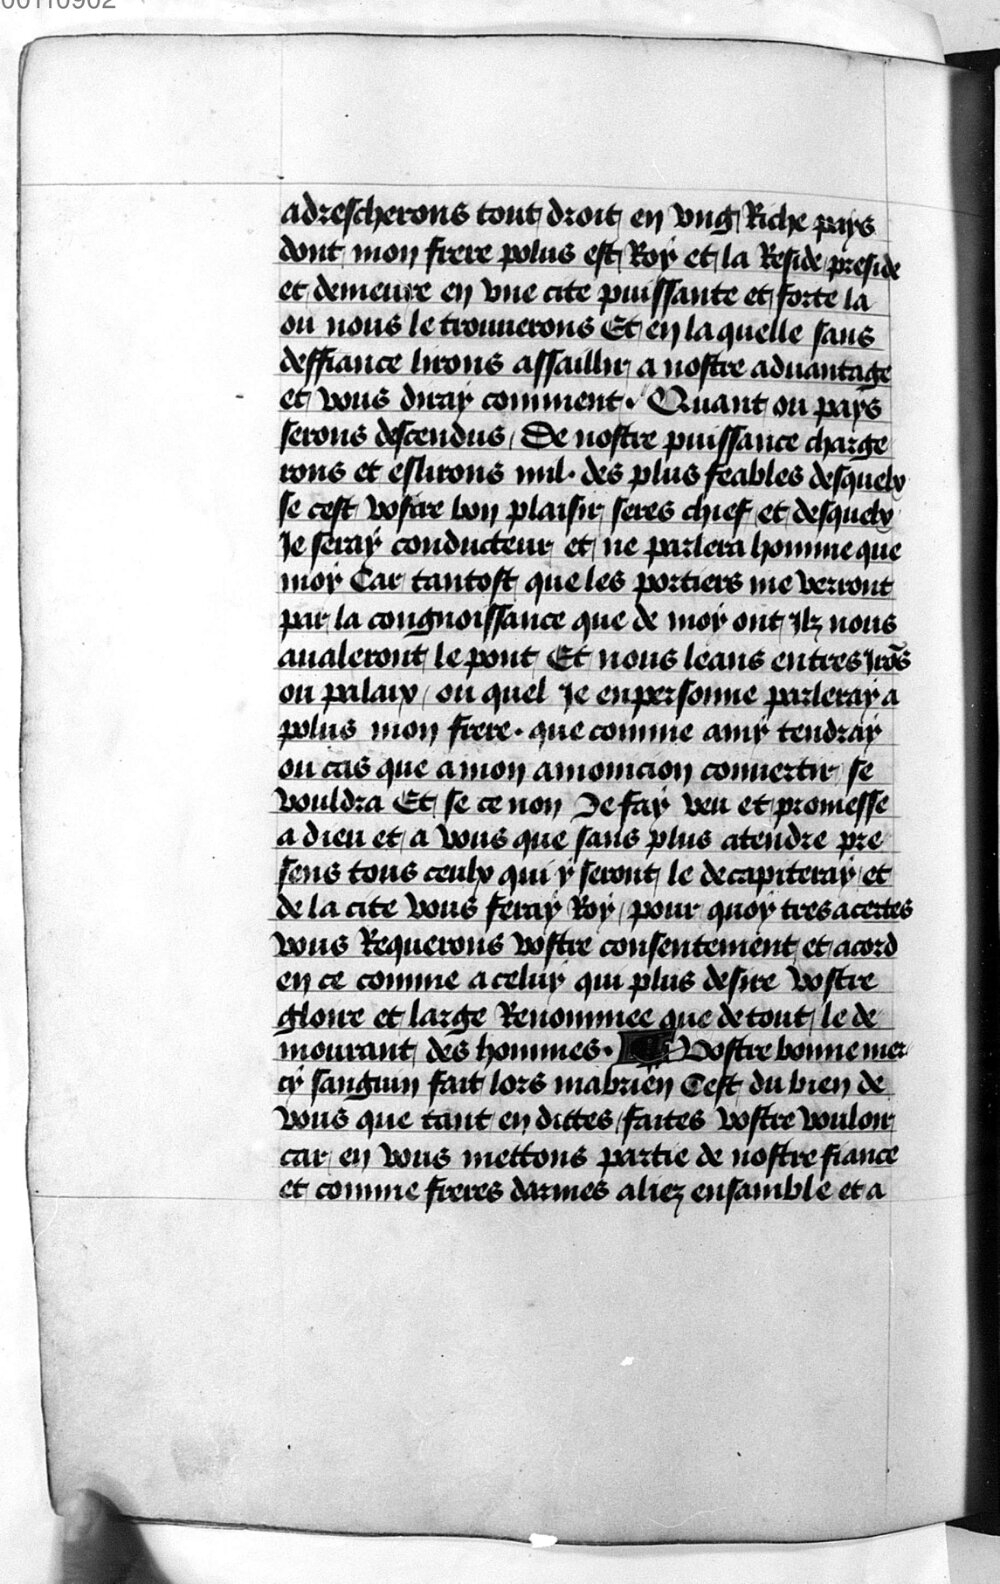 00110902
adrescherons tout droit en vng Riche pays
dont mon frere polus est Roy et la Reside preside
et demeure en vne cite puissante et forte la
ou nous le trouuerons Et en la quelle sans
deffiance lirons assaillir a nostre aduantage
et vous diray comment. Quant ou pays
serons descendus / De nostre puissance charge
rons et eslirons mil. des plus feables desquelx
se cest vostre bon plaisir seres chief et desquelx
Je seray conducteur et ne parlera homme que
moy Car tantost que les portiers me verront
par la congnoissance que de moy ont Ilz nous
aualeront le pont Et nous leans entres Irõs
ou palaix / ou quel Je en personne parleray a
polus mon frere. que comme amy tendray
ou cas que a mon amonicion conuertir se
vouldra Et se ce non Je fay veu et promesse
a dieu et a vous que sans plus atendre pre
sens tous ceulx qui y seront le decapiteray et
de la cite vous feray Roy / pour quoy tres acertes
vous Requerons vostre consentement et acord
en ce comme a celuy qui plus desire vostre
gloire et large Renommee que de tout le de
mourant des hommes. Vostre bonne mer
cy sanguin fait lors mabrien Cest du bien de
vous que tant en dittes / faites vostre vouloir
car en vous mettons partie de nostre fiance
et comme freres darmes aliez ensamble et a